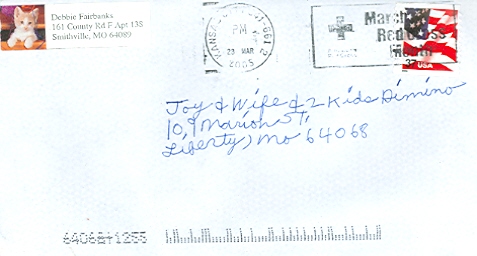 Debbie Fairbanks
161 County Rd F Apt 13S
Smithville, MO 64089
KANSAS
PM
23 MAR
2005
March
Red Cross
Month
37
USA
Joy & Wife & 2 Kids Dimino
109 Marion St.
Liberty, Mo 64068
64068+1255